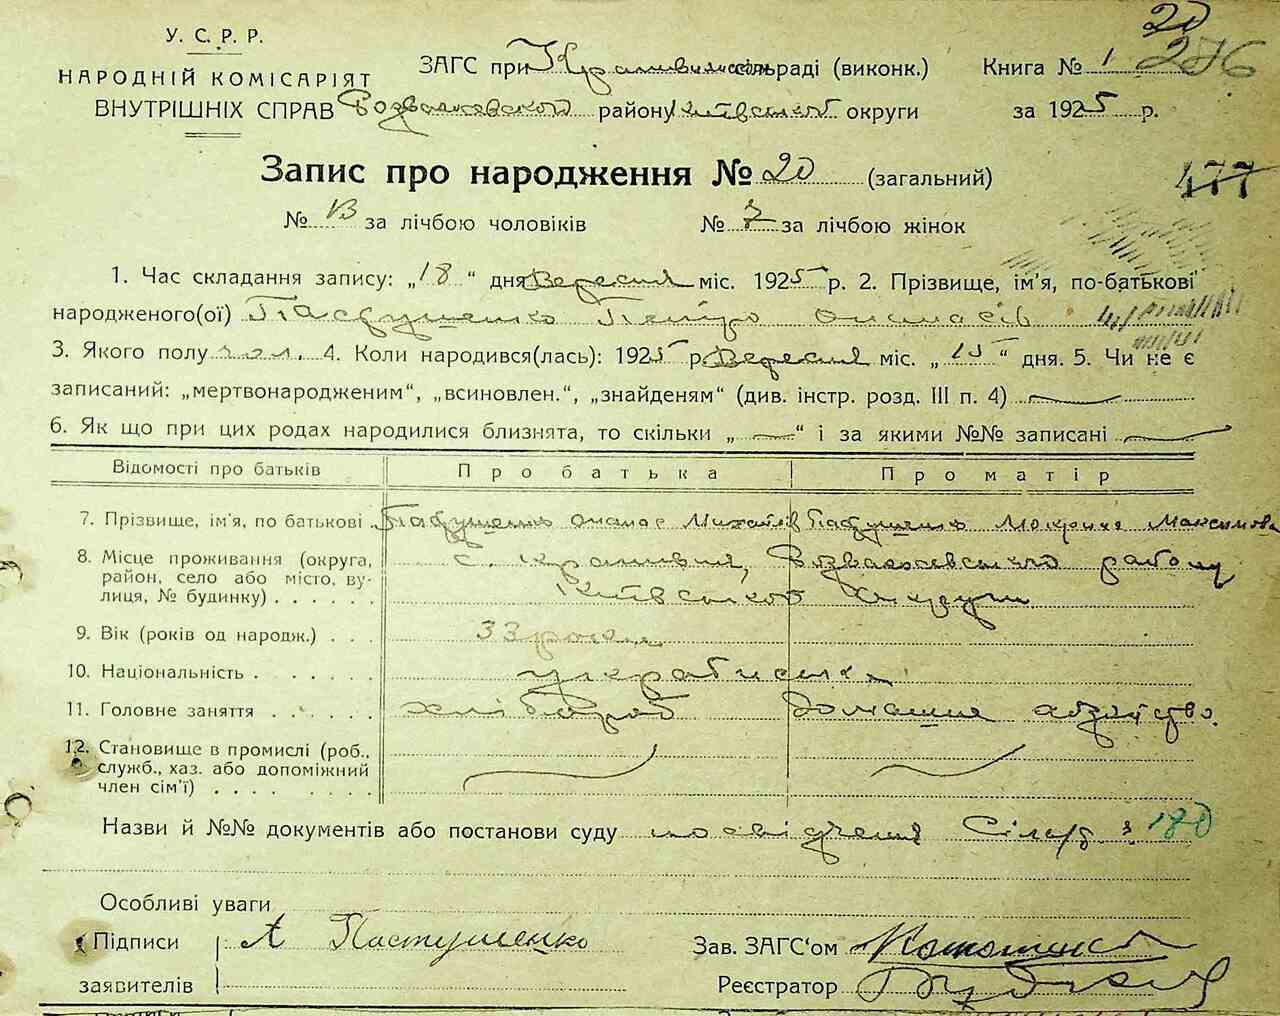 20
У. С. Р. Р.
НАРОДНІЙ КОМІСАРІЯТ
ВНУТРІШНІХ СПРАВ
276
ЗАГС при сільраді (виконк.) Книга № 1
району Київської округи за 1925 р.
Запис про народження № 20 (загальний)
477
№ 13 за лічбою чоловіків № 7 за лічбою жінок
1. Час складання запису: „18“ дня Вересня міс. 1925 р. 2. Прізвище, ім'я, по-батькові
народженого(ої) Пастушенко Петро
3. Якого полу чол. 4. Коли народився(лась): 1925 р. Вересня міс. „15“ дня. 5. Чи не є
записаний: „мертвонародженим“, „всиновлен.“, „знайденям“ (див. інстр. розд. III п. 4)
6. Як що при цих родах народилися близнята, то скільки „—“ і за якими №№ записані —
Відомості про батьків Про батька Про матір
7. Прізвище, ім'я, по батькові Пастушенко Опанас Михайлів Пастушенко Мокрина Максимова
8. Місце проживання (округа,
район, село або місто, ву-
лиця, № будинку) . . . . . .
с. району
Київської Округи
9. Вік (років од народж.) . . . 33 роки
10. Національність . . . . . . . українська
11. Головне заняття . . . . . . хлібороб домашне хазяйство.
12. Становище в промислі (роб.,
служб., хаз. або допоміжний
член сім'ї) . . . . . . . . .
Назви й №№ документів або постанови суду посвідчення 180
Особливі уваги
Підписи А Пастушенко Зав. ЗАГС'ом
заявителів Реєстратор